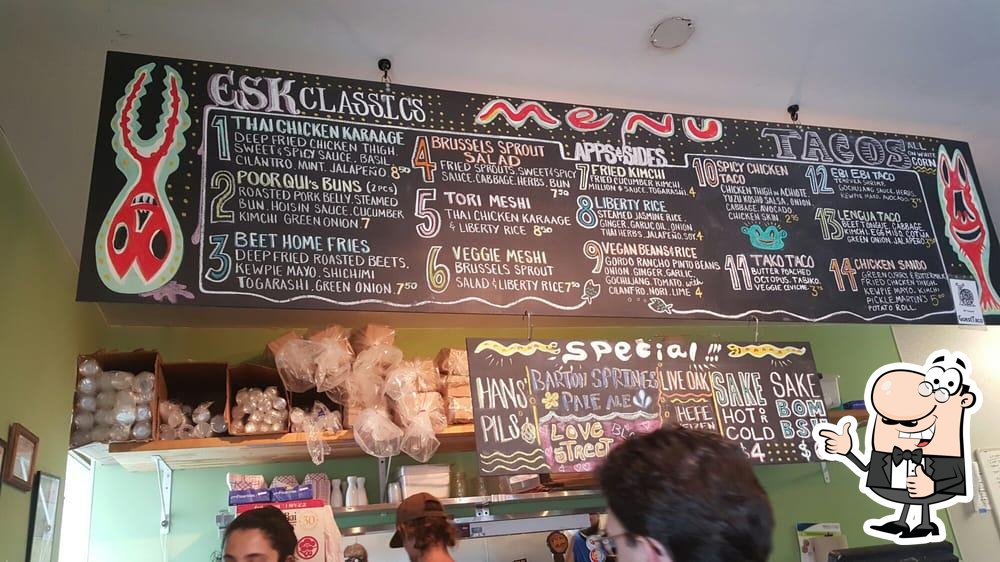 ESK CLASSICS
MENU
1 THAI CHICKEN KARAAGE
DEEP FRIED CHICKEN THIGH
SWEET & SPICY SAUCE, BASIL,
CILANTRO, MINT, JALAPEÑO 8⁵⁰
2 POORQUI'S BUNS (2 PCS)
ROASTED PORK BELLY, STEAMED
BUN, HOISIN SAUCE, CUCUMBER
KIMCHI GREEN ONION. 7
3 BEET HOME FRIES
DEEP FRIED ROASTED BEETS,
KEWPIE MAYO, SHICHIMI
TOGARASHI, GREEN ONION. 7⁵⁰
4 BRUSSELS SPROUT
SALAD
FRIED SPROUTS, SWEET & SPICY
SAUCE, CABBAGE, HERBS, BUN
7⁵⁰
5 TORI MESHI
THAI CHICKEN KARAAGE
& LIBERTY RICE 8⁵⁰
6 VEGGIE MESHI
BRUSSELS SPROUT
SALAD & LIBERTY RICE 7⁵⁰
APPS & SIDES
7 FRIED KIMCHI
FRIED CUCUMBER KIMCHI,
MILLION $ SAUCE, TOGARASHI. 4
8 LIBERTY RICE
STEAMED JASMINE RICE,
GINGER, GARLIC OIL,
THAI HERBS, JALAPEÑO, SOY. 4
9 VEGAN BEANS & RICE
GORDO RANCHO PINTO BEANS
ONION, GINGER, GARLIC,
GOCHUJANG, TOMATO, with
CILANTRO, NORI, LIME 4
TACOS
ON WHITE
CORN
10 SPICY CHICKEN
TACO
CHICKEN THIGH in ACHIOTE
YUZU KOSHO SALSA, ONION
CABBAGE, AVOCADO,
CHICKEN SKIN. 2⁹⁵
11 TAKO TACO
BUTTER POACHED
OCTOPUS, TABIKO,
VEGGIE CEVICHE
12 EBI EBI TACO
TEMPURA SHRIMP,
GOCHUJANG SAUCE, HERBS,
KEWPIE MAYO, AVOCADO
13 LENGUA TACO
BEEF TONGUE, CABBAGE
KIMCHI, EGG MISO, COTIJA
GREEN ONION, JALAPEÑO
14 CHICKEN SANDO
GREEN CURRY & BUTTERMILK
FRIED CHICKEN THIGH,
KEWPIE MAYO, KIMCHI
PICKLE, MARTIN'S
POTATO ROLL.
SPECIAL!!!
HANS'
PILS
BARTON SPRINGS
PALE ALE
LOVE
STREET
LIVE OAK
HEFE
SAKE
HOT OR
COLD
$4
SAKE
BOMB